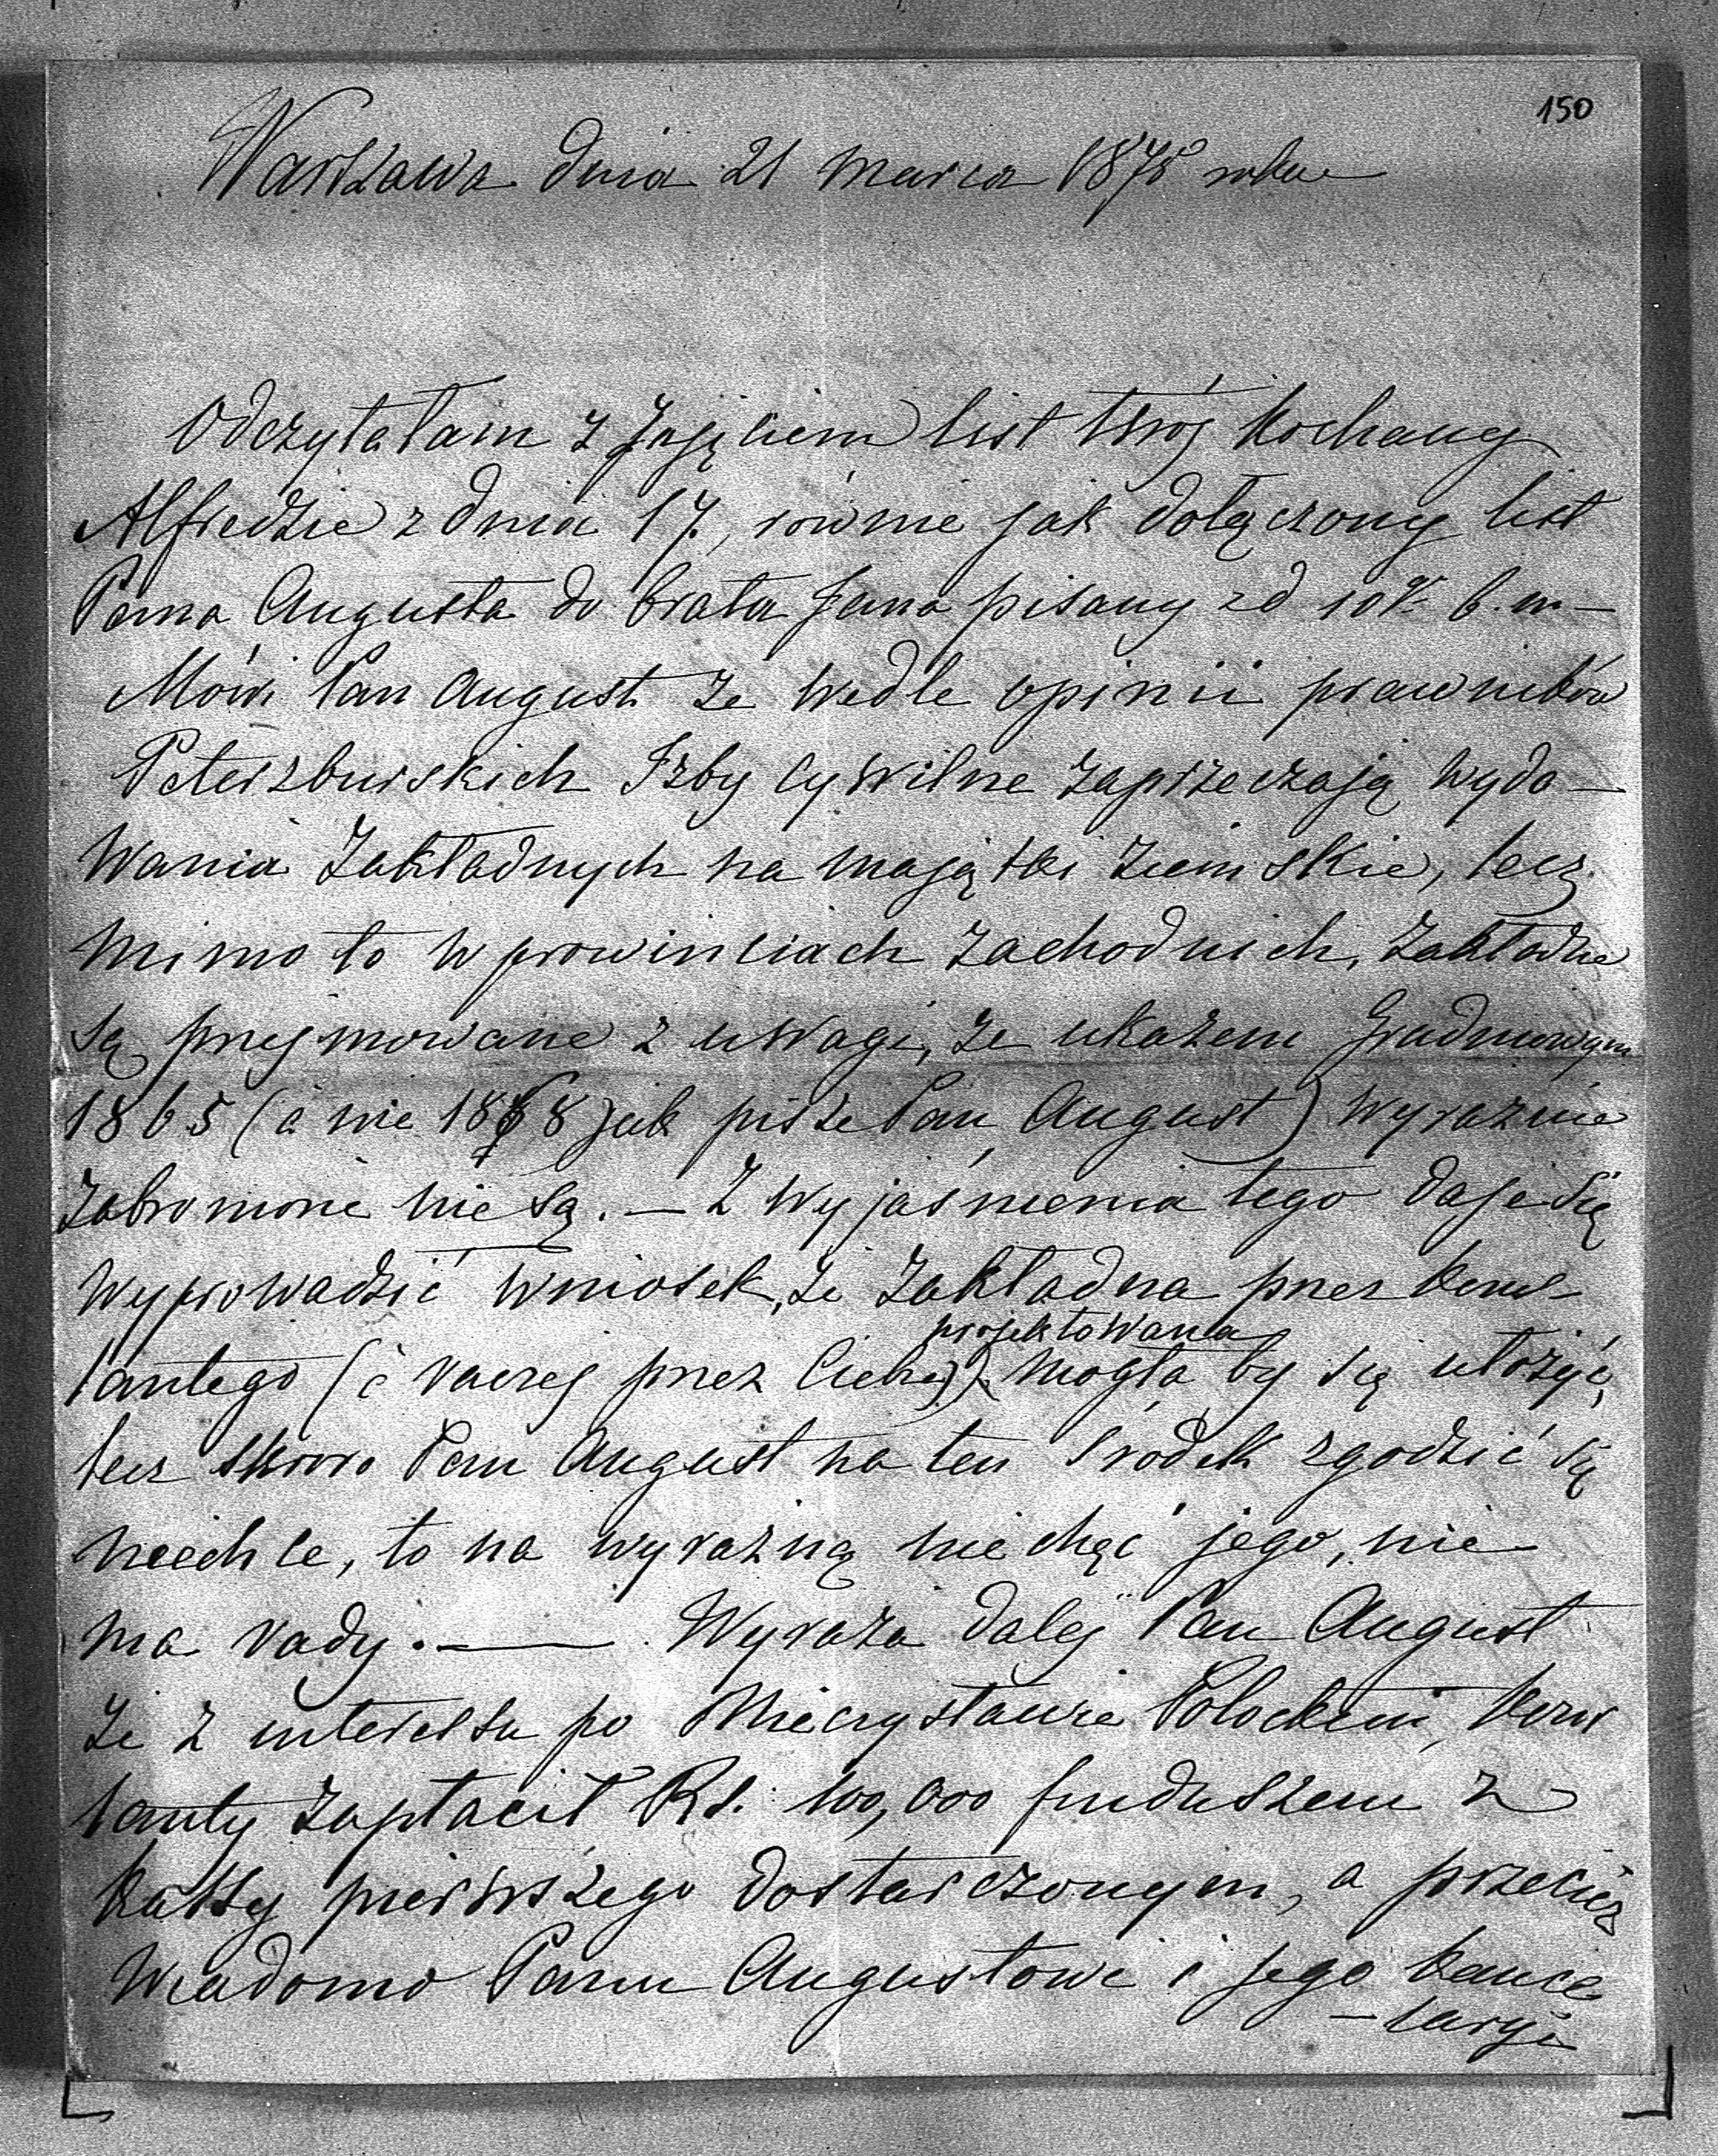 150
Warszawa dnia 21 marca 1878 roku
Odczytałam z zajęciem list twój kochany
Alfredzie z dnia 17, równie jak dołączony list
Pana Augusta do brata Jana pisany z d 10 b. m —
Mówi Pan August że wedle opinii prawników
Petersburskich Izby Cywilne zaprzeczają wyda-
wania zakładnych na majątki ziemskie, lecz
mimo to w prowinciach zachodnich, zakładne
są przejmowane z uwagi, że ukazem Grudniowym
1865 (a nie 1868 jak pisze Pan August) wyraźnie
zabronione nie są. — Z wyjaśnienia tego daje się
wyprowadzić wniosek, że zakładna przez kons-
projektowana
tantego (i raczej przez Ciebie) mogła by się ułożyć,
lecz skoro Pan August na ten środek zgodzić się
niechce, to na wyraźną niechęć jego, nie-
ma rady. — Wyraża dalej Pan August
że z interessu po Mieczysławie Potockim, kons
tanty zapłacił Rs. 100,000 funduszem z
kassy pierwszego dostarczonym, a przecież
wiadomo Panu Augustowi i jego kance
-laryi